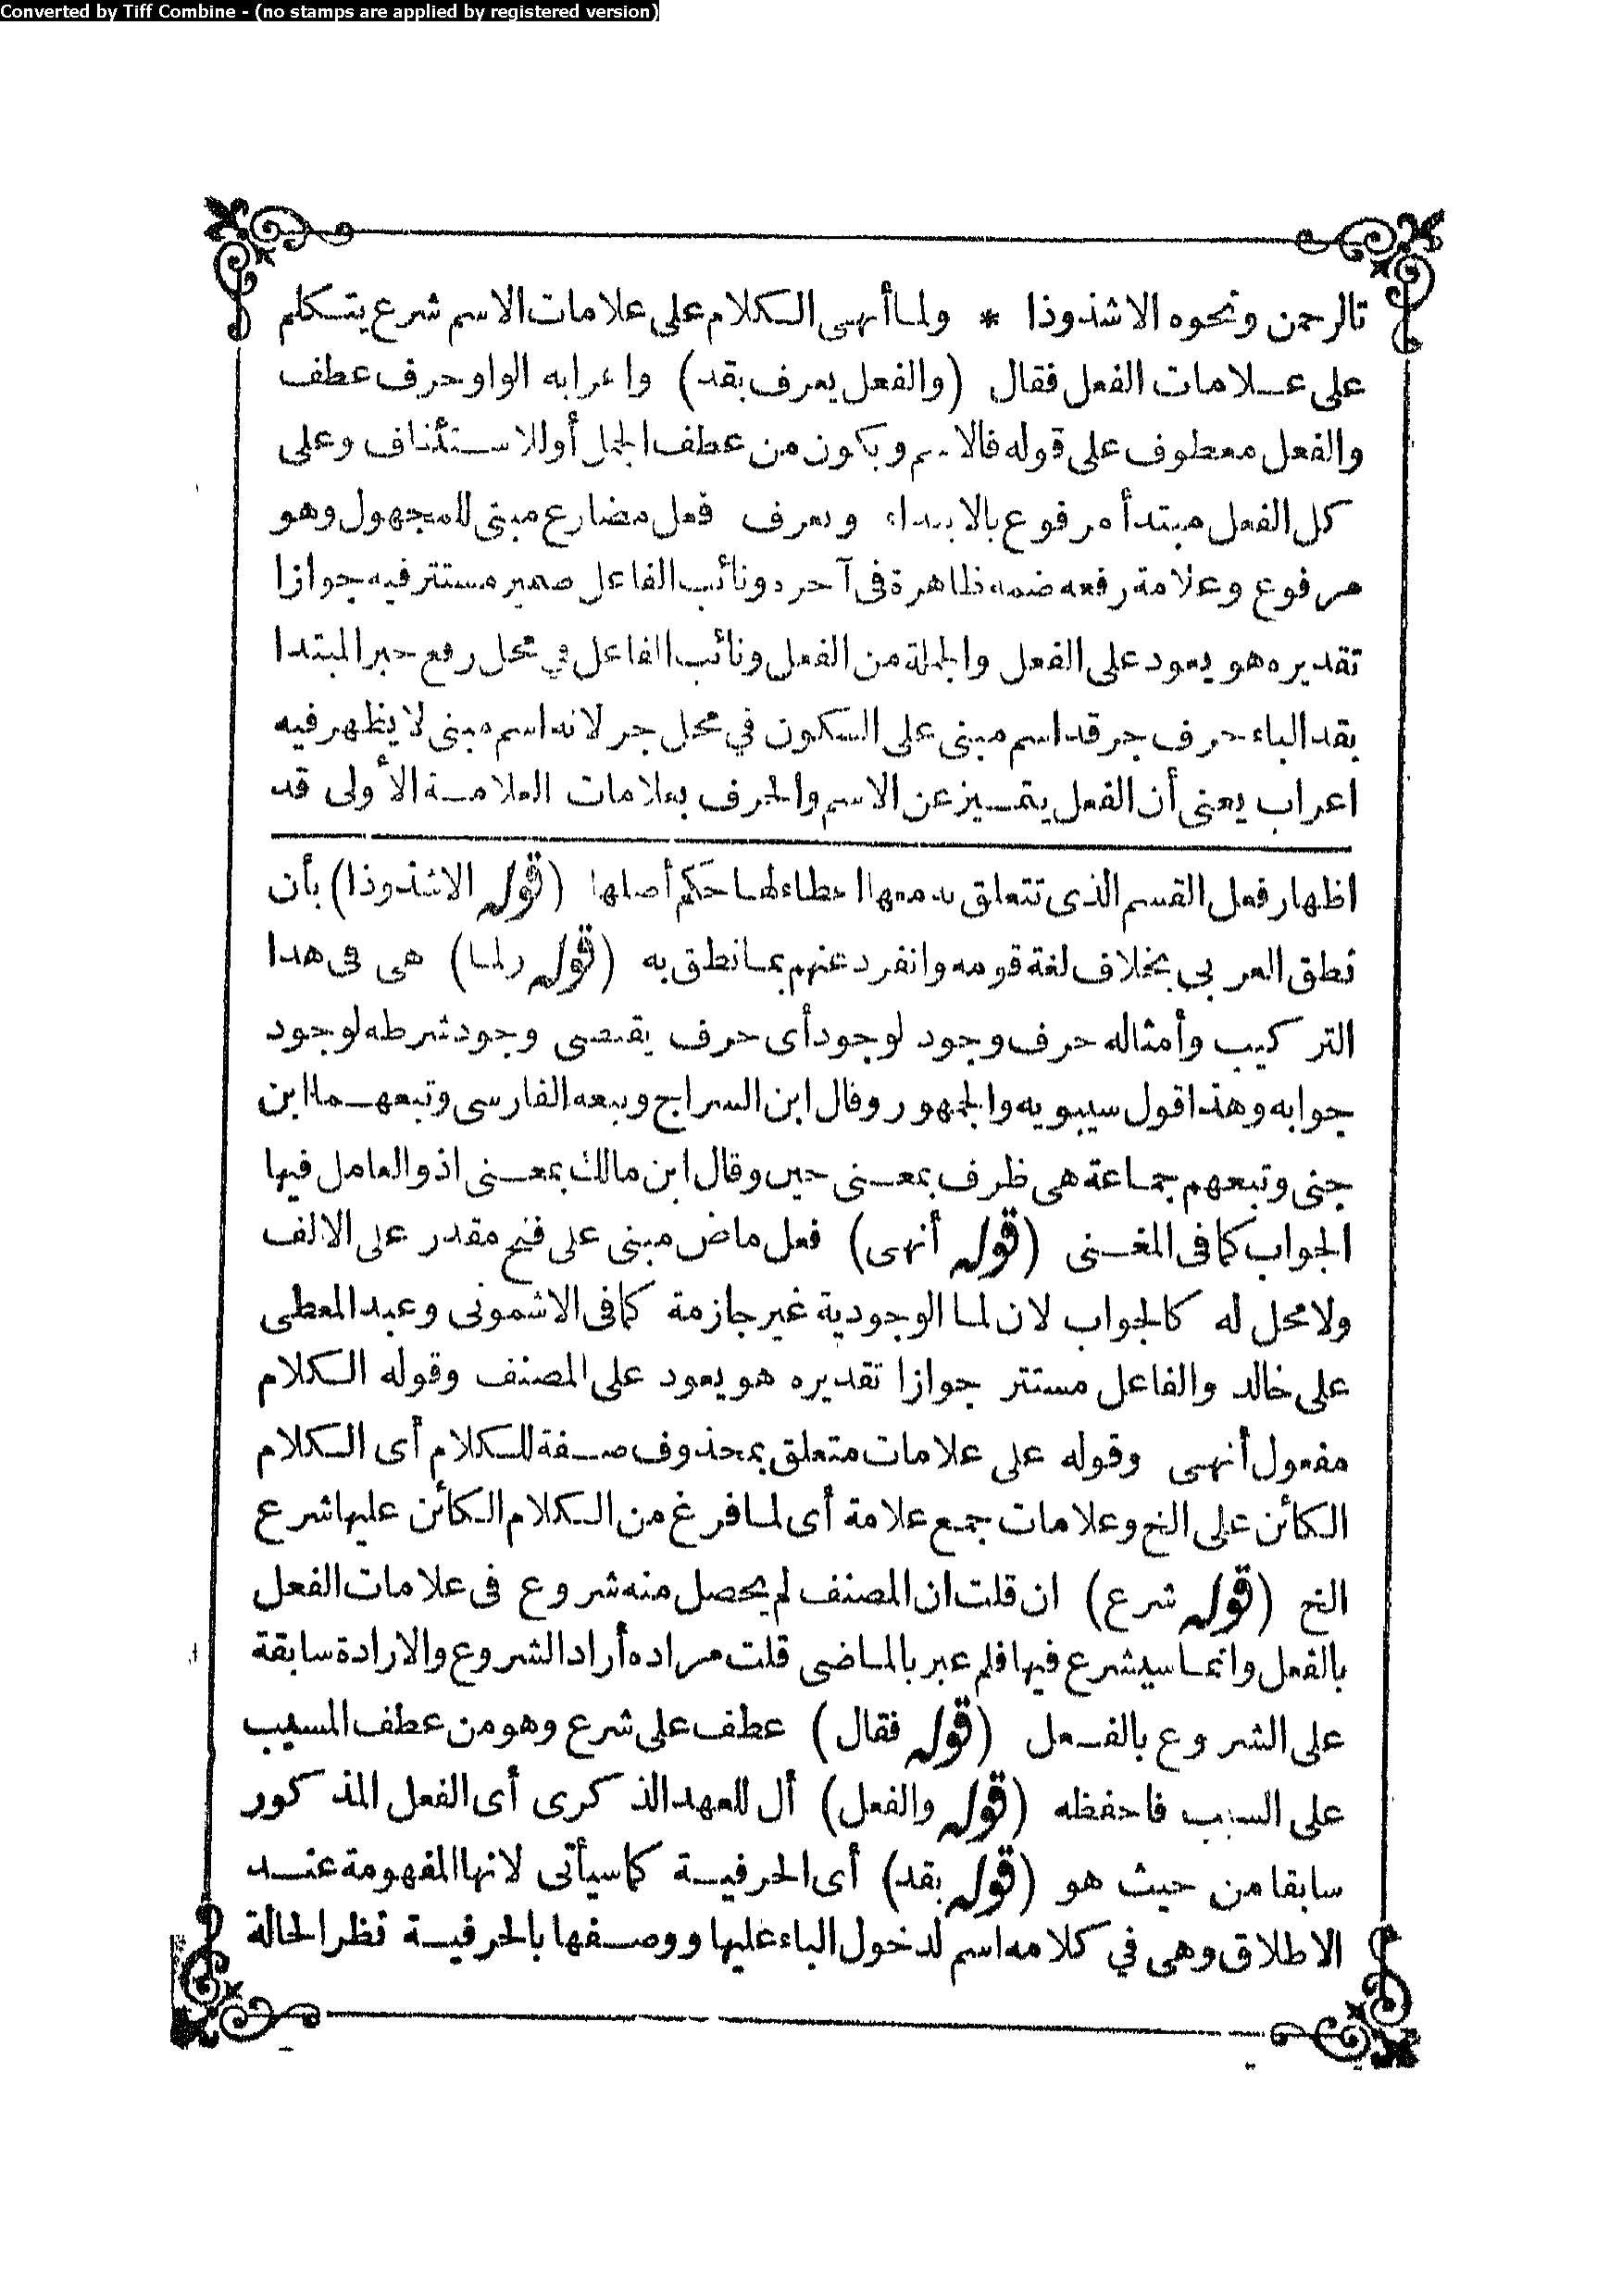 Converted by Tiff Combine - (no stamps are applied by registered version)
تالرحمن ونحوه الاشذوذا * ولما أنهى الكلام على علامات الاسم شرع يتكلم
على علامات الفعل فقال (والفعل يعرف بقد) واعرابه الواو حرف عطف
والفعل معطوف على قوله فالاسم ويكون من عطف الجمل أو للاستئناف وعلى
كل الفعل مبتدأ مرفوع بالابتداء ويعرف فعل مضارع مبنى للمجهول وهو
مرفوع وعلامة رفعه ضمه ظاهرة فى آخره ونائب الفاعل ضمير مستتر فيه جوازا
تقديره هو يعود على الفعل والجملة من الفعل ونائب الفاعل في محل رفع خبر المبتدا
بقد الباء حرف جر قد اسم مبنى على السكون في محل جر لانه اسم مبنى لا يظهر فيه
اعراب يعنى أن الفعل يتميز عن الاسم والحرف بعلامات العلامة الأولى قد
اظهار فعل القسم الذى تتعلق به معها اعطاء لها حكم أصلها (قوله الاشذوذا) بأن
نطق العربي بخلاف لغة قومه وانفرد عنهم بما نطق به (قوله ولما) هى فى هذا
التركيب وأمثاله حرف وجود لوجود أى حرف يقتضى وجود شرطه لوجود
جوابه وهذا قول سيبويه والجمهور وقال ابن السراج وتبعه الفارسى وتبعهما ابن
جنى وتبعهم جماعة هى ظرف بمعنى حين وقال ابن مالك بمعنى اذ والعامل فيها
الجواب كما فى المغنى (قوله أنهى) فعل ماض مبنى على فتح مقدر على الالف
ولا محل له كالجواب لان لما الوجودية غير جازمة كما فى الاشمونى وعبد المعطى
على خالد والفاعل مستتر جوازا تقديره هو يعود على المصنف وقوله الكلام
مفعول أنهى وقوله على علامات متعلق بمحذوف صفة للكلام أى الكلام
الكائن على الخ وعلامات جمع علامة أى لما فرغ من الكلام الكائن عليها شرع
الخ (قوله شرع) ان قلت ان المصنف لم يحصل منه شروع فى علامات الفعل
بالفعل وانما سيشرع فيها فلم عبر بالماضى قلت مراده أراد الشروع والارادة سابقة
على الشروع بالفعل (قوله فقال) عطف على شرع وهو من عطف المسبب
على السبب فاحفظه (قوله والفعل) أل للعهد الذكرى أى الفعل المذكور
سابقا من حيث هو (قوله بقد) أى الحرفية كما سيأتى لانها المفهومة عند
الاطلاق وهى في كلامه اسم لدخول الباء عليها ووصفها بالحرفية نظر الحالة